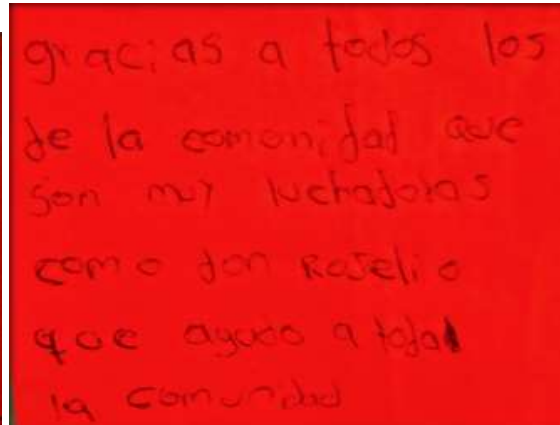 gracias a todos los
de la comonidad que
son muy luchadoras
como don Rojelio
que ayudo a toda
la comunidad